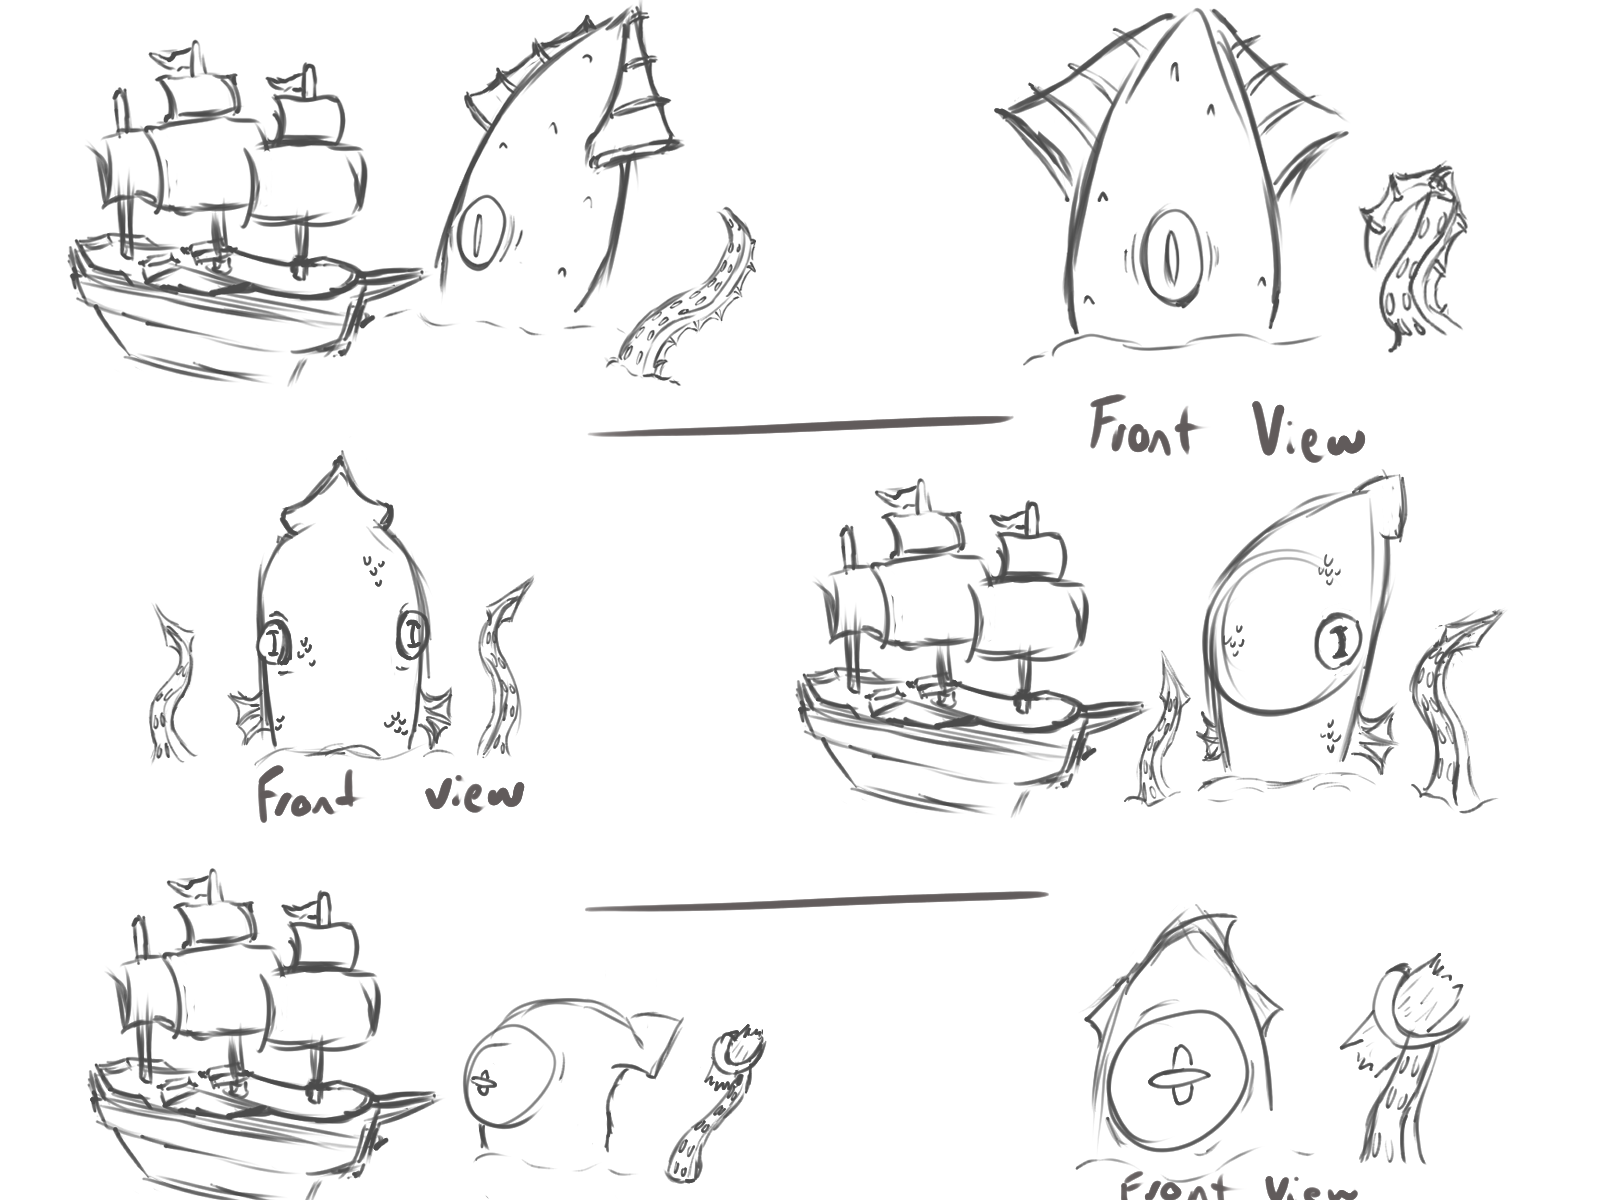 Front View
Front view
Front View